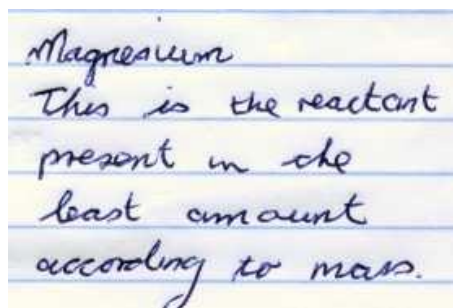 Magnesium
This is the reactant
present in the
least amount
according to mass.